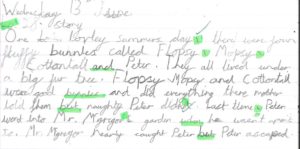 Wednesday 13th June
Story
One lovley summers day, there were four
fluffy bunnies called Flopsy, Mopsy,
Cottontail and Peter. They all lived under
a big fur tree. Flopsy Mopsy and Cottontail
were good bunnies and did everything there mother
told them but naughty Peter didn't. Last time Peter
went into Mr. Mgregor's garden when he wasn't
to. Mr. Mgregor nearly caught Peter but Peter escaped.